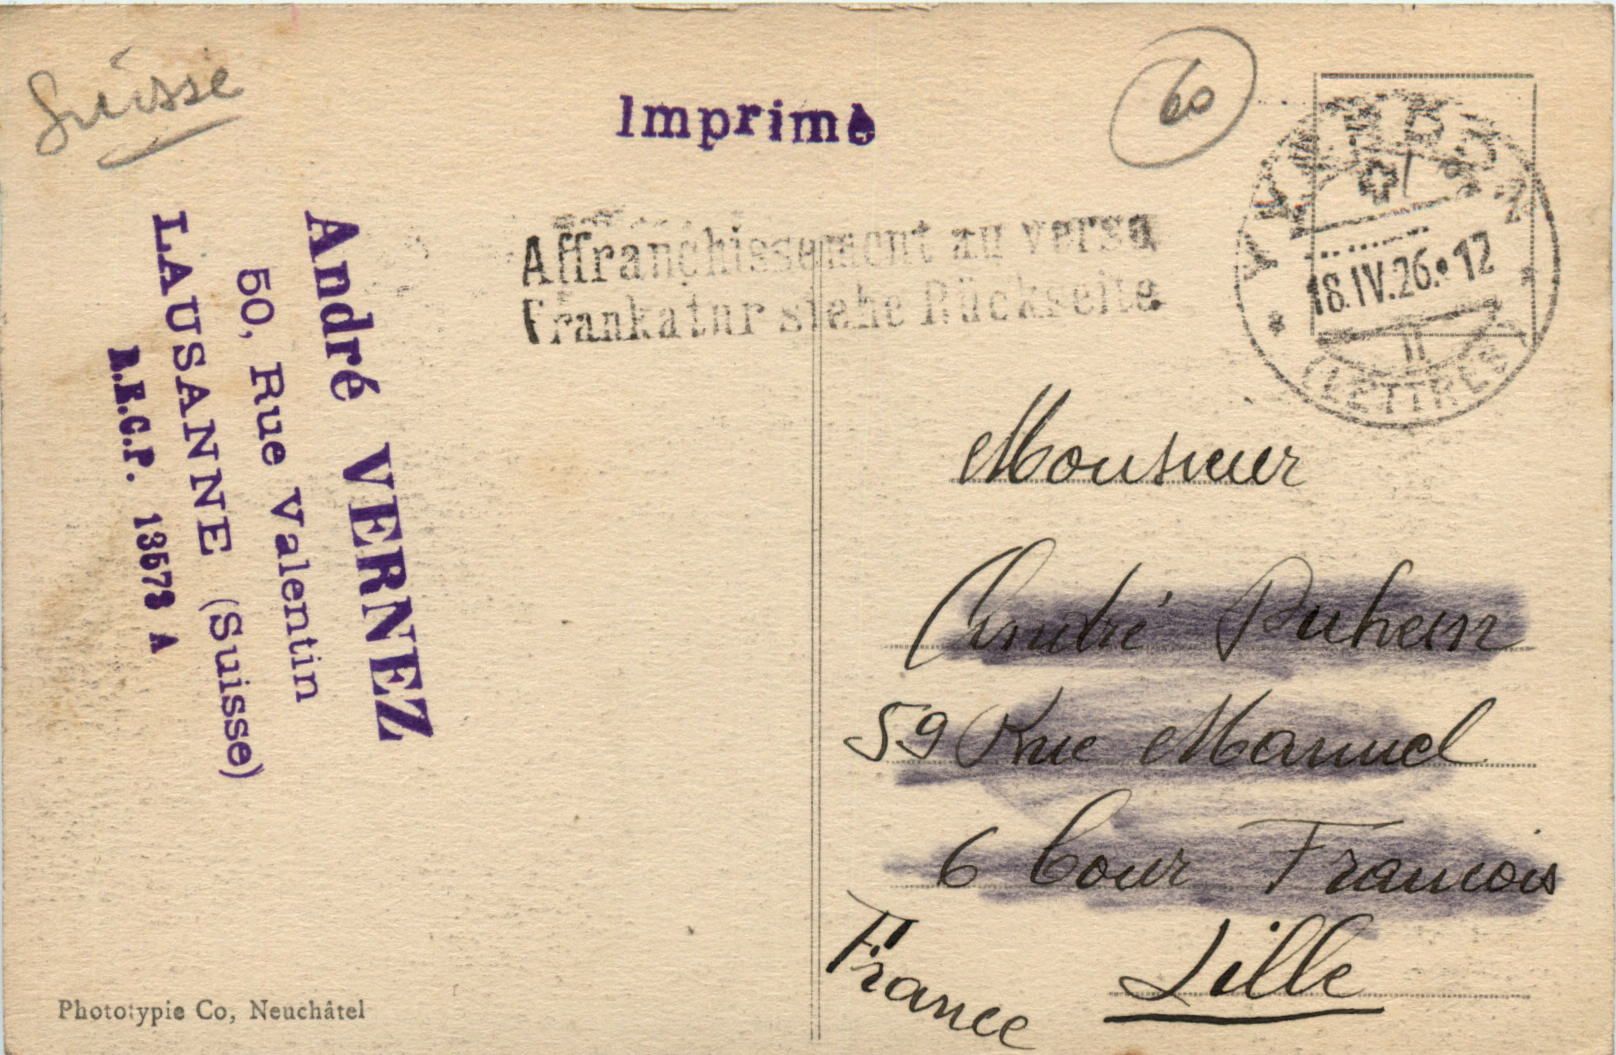 Suisse
60
Imprimé
Affranchissement au verso
Frankatur siehe Rückseite
YVERDON
18.IV.26.•12
II
LETTRES
André VERNEZ
50, Rue Valentin
LAUSANNE (Suisse)
13573 A
Monsieur
André Duhem
59 Rue Manuel
6 Cour Francois
Lille
France
Phototypie Co, Neuchâtel